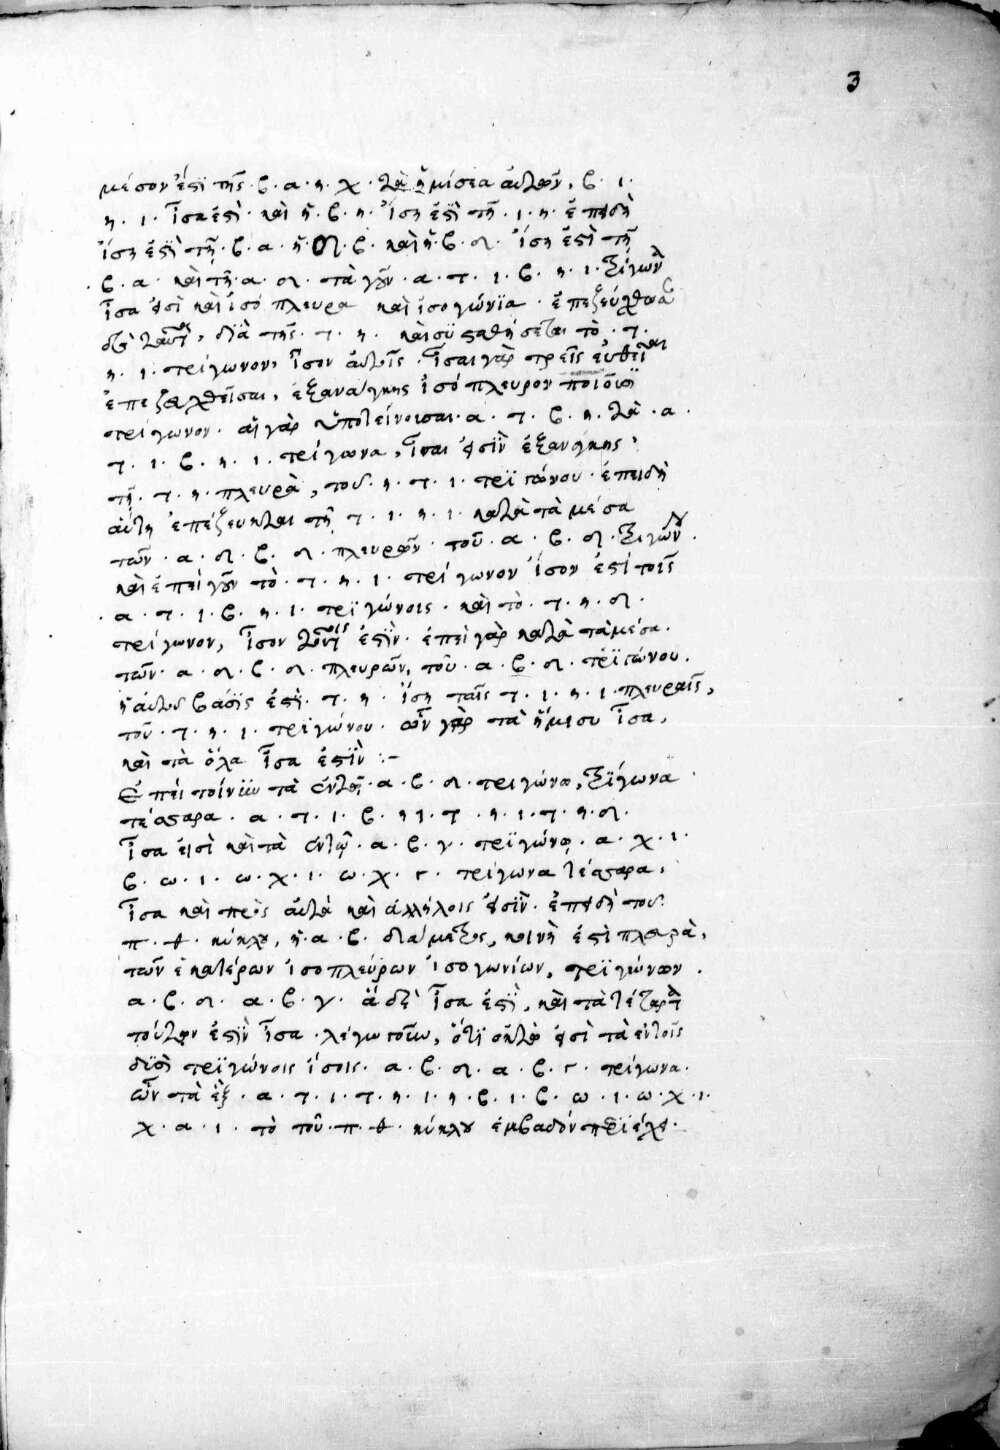 3
μέσον ἐστὶ τῆς · β · α · η · χ · τὰ ἡμίσεα αὐτῶν · β · ι ·
η · ι · ἴσα ἐστὶ · καὶ ἡ · β · η · ἴση ἐστὶ τῆ · ι · η · ἐπειδὴ
ἴση ἐστὶ τῆ · β · α · ἡ · δ · β · καὶ ἡ · β · δ · ἴση ἐστὶ τῆ
β · α · καὶ τῆ · α · δ · τὰ γοῦν · α · τ · ι · β · η · ι · τρίγωνα
ἴσα εἰσὶ καὶ ἰσόπλευρα καὶ ἰσογώνια · ἐπεζεύχθωσαν
διὰ τῆς · τ · η · καὶ συσταθήσεται τὸ · τ ·
η · ι · τρίγωνον, ἴσον αὐτοῖς · ἴσαι γὰρ τρεῖς εὐθεῖαι
ἐπεζεύχθεῖσαι, ἐξανάγκης ἰσόπλευρον ποιοῦσι
τρίγωνον · αἱ γὰρ ὑποτείνουσαι · α · τ · β · η · τὰ · α ·
τ · ι · β · η · ι · τρίγωνα, ἴσαι εἰσὶν ἐξανάγκης,
τῆ · τ · η · πλευρᾶ, τοῦ · η · τ · ι · τριγώνου · ἐπειδὴ
αὕτη ἐπέζευκται τῆ · τ · ι · η · ι · κατὰ τὰ μέσα
τῶν · α · δ · β · δ · πλευρῶν · τοῦ · α · β · δ · τριγώνου ·
καὶ ἐπεὶ γοῦν τὸ · τ · η · ι · τρίγωνον ἴσον ἐστὶ τοῖς
α · τ · ι · β · η · ι · τριγώνοις · καὶ τὸ · τ · η · δ ·
τρίγωνον, ἴσον τούτοις ἐστὶν · ἐπεὶ γὰρ κατὰ τὰ μέσα ·
τῶν · α · δ · β · δ · πλευρῶν, τοῦ · α · β · δ · τριγώνου ·
ἡ αὐτοῦ βάσις ἐστὶ · τ · η · ἴση ταῖς τ · ι · η · ι · πλευραῖς,
τοῦ · τ · η · ι · τριγώνου · ὧν γὰρ τὰ ἥμισυ ἴσα,
καὶ τὰ ὅλα ἴσα ἐστὶν :-
Ἐπεὶ τοίνυν τὰ ἐντὸς · α · β · δ · τριγώνω, τρίγωνα
τέσσαρα · α · τ · ι · β · η ι · τ · η · ι · τ · η · δ ·
ἴσα εἰσὶ καὶ τὰ ἐντὸς · α · β · γ · τριγώνω · α · χ · ι ·
β · ω · ι · ω · χ · ι · ω · χ · γ · τρίγωνα τέσσαρα,
ἴσα καὶ πρὸς αὐτὰ καὶ ἀλλήλοις εἰσὶν · ἐπειδὴ τοῦ
π · θ · κύκλου, ἡ · α · β · διάμετρος, κοινὴ ἐστὶ πλευρὰ,
τῶν ἑκατέρων ἰσοπλεύρων ἰσογωνίων, τριγώνων ·
α · β · δ · α · β · γ · ἃ δὲ ἴσα ἐστὶ, καὶ τὰ τέταρτα
τούτων ἐστὶν ἴσα · λέγω τοίνυν, ὅτι ὀκτὼ εἰσὶ τὰ ἐν τοῖς
δυσὶ τριγώνοις ἴσοις · α · β · δ · α · β · γ · τρίγωνα ·
ὧν τὰ ἓξ · α · τ · ι · τ · η · ι · η · β · ι · β · ω · ι · ω · χ · ι ·
χ · α · ι · τὸ τοῦ · π · θ · κύκλου ἐμβαδὸν περιέχει ·